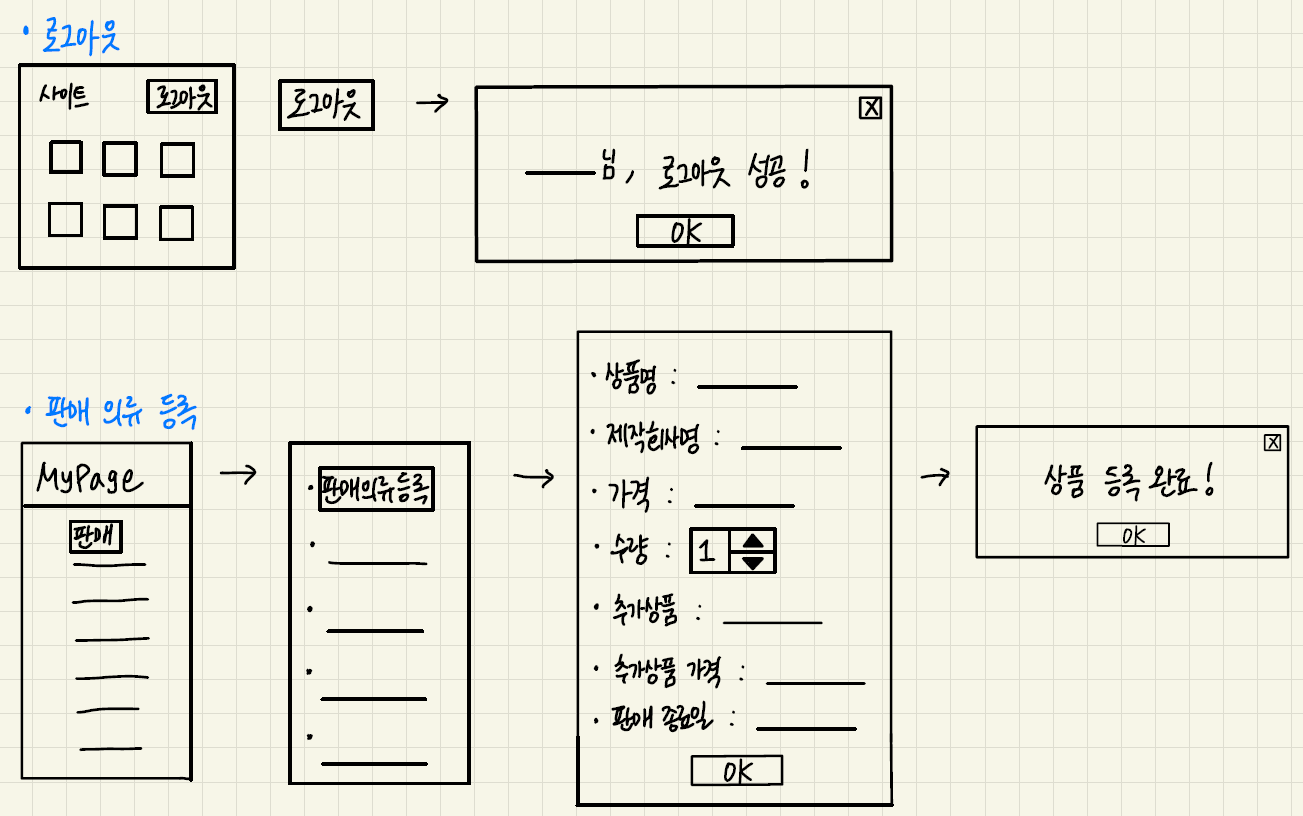 • 로그아웃
사이트 로그아웃
로그아웃 →
X
____님, 로그아웃 성공!
OK
• 판매 의류 등록
MyPage
판매
→
• 판매의류등록
→
• 상품명 :
• 제작회사명 :
• 가격 :
• 수량 : 1 ▲▼
• 추가상품 :
• 추가상품 가격 :
• 판매 종료일 :
OK
→
X
상품 등록 완료!
OK